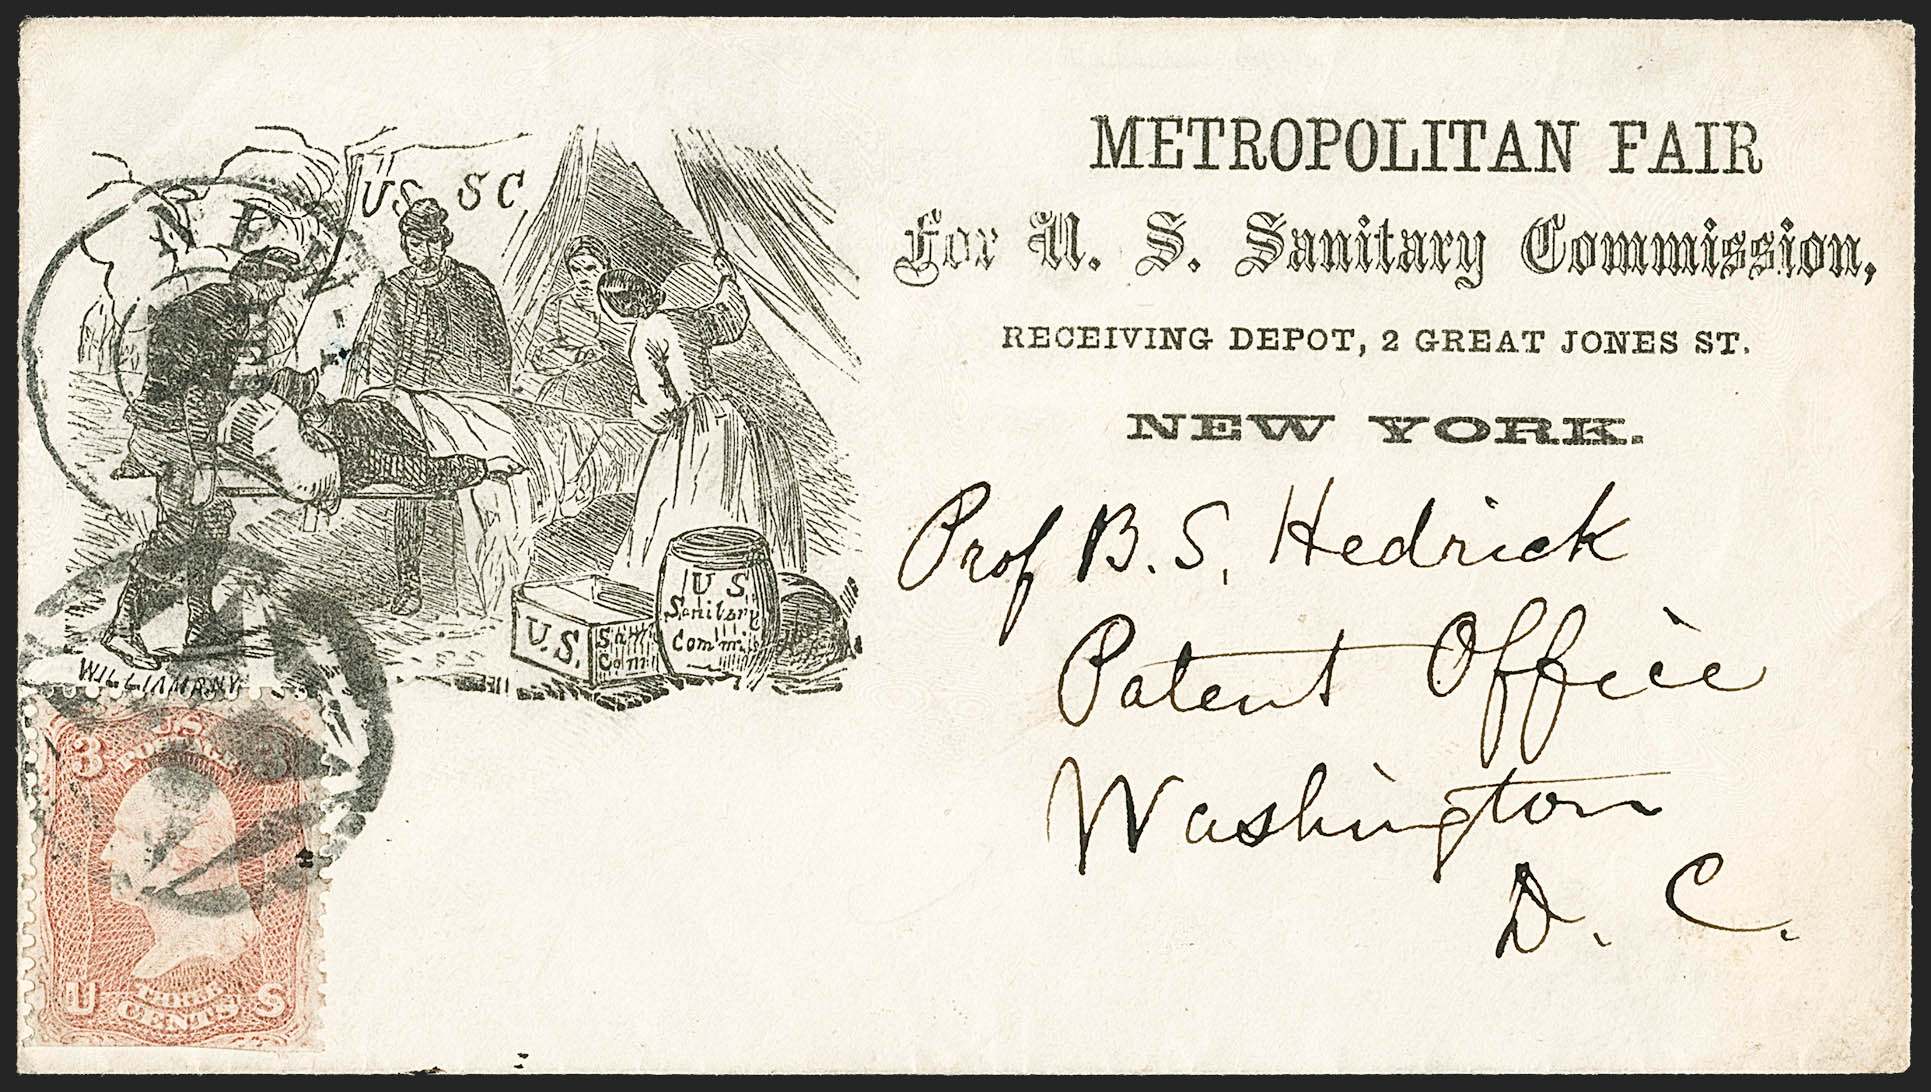 METROPOLITAN FAIR
For U. S. Sanitary Commission,
RECEIVING DEPOT, 2 GREAT JONES ST.
NEW YORK.
Prof B. S. Hedrick
Patent Office
Washington
D. C.
US SC
U.S.
Sani
Com
U S
Sanitary
Comm
NEW
3 3
U S
POSTAGE
U S
THREE
CENTS